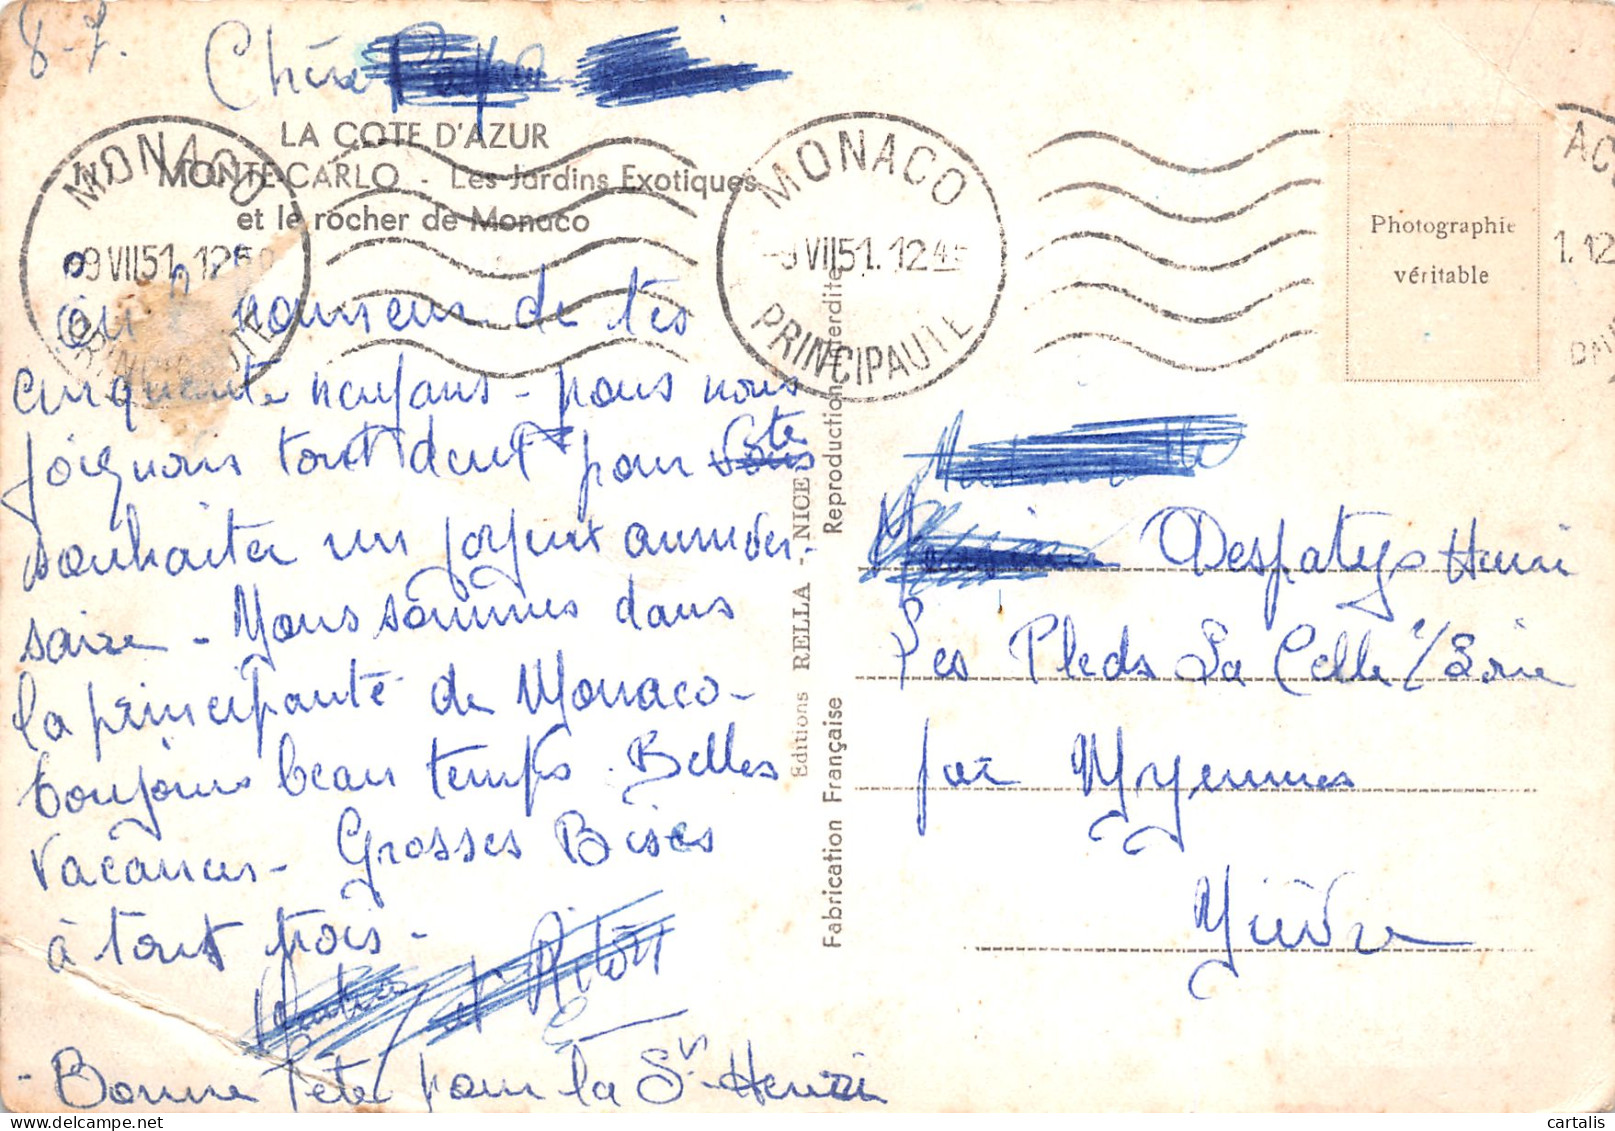 8-7.
LA COTE D'AZUR
MONTE-CARLO - Les Jardins Exotiques
et le rocher de Monaco
MONACO
09 VII 51. 12
PRINCIPAUTE
MONACO
9 VII 51. 12 45
PRINCIPAUTE
1.12
Photographie
véritable
en honneur de tes
cinquante ans - nous
joignons tout pour te
souhaiter un joyeux anniver-
saire - Nous sommes dans
la principauté de Monaco -
toujours beau temps. Belles
vacances - Grosses Bises
à tout trois -
- Bonne fête pour la St Henri
Editions RELLA - NICE
Fabrication Française
Reproduction interdite
Despatys Henri
Les Pleds La Celle s/Loire
par Myennes
Nièvre
cartalis